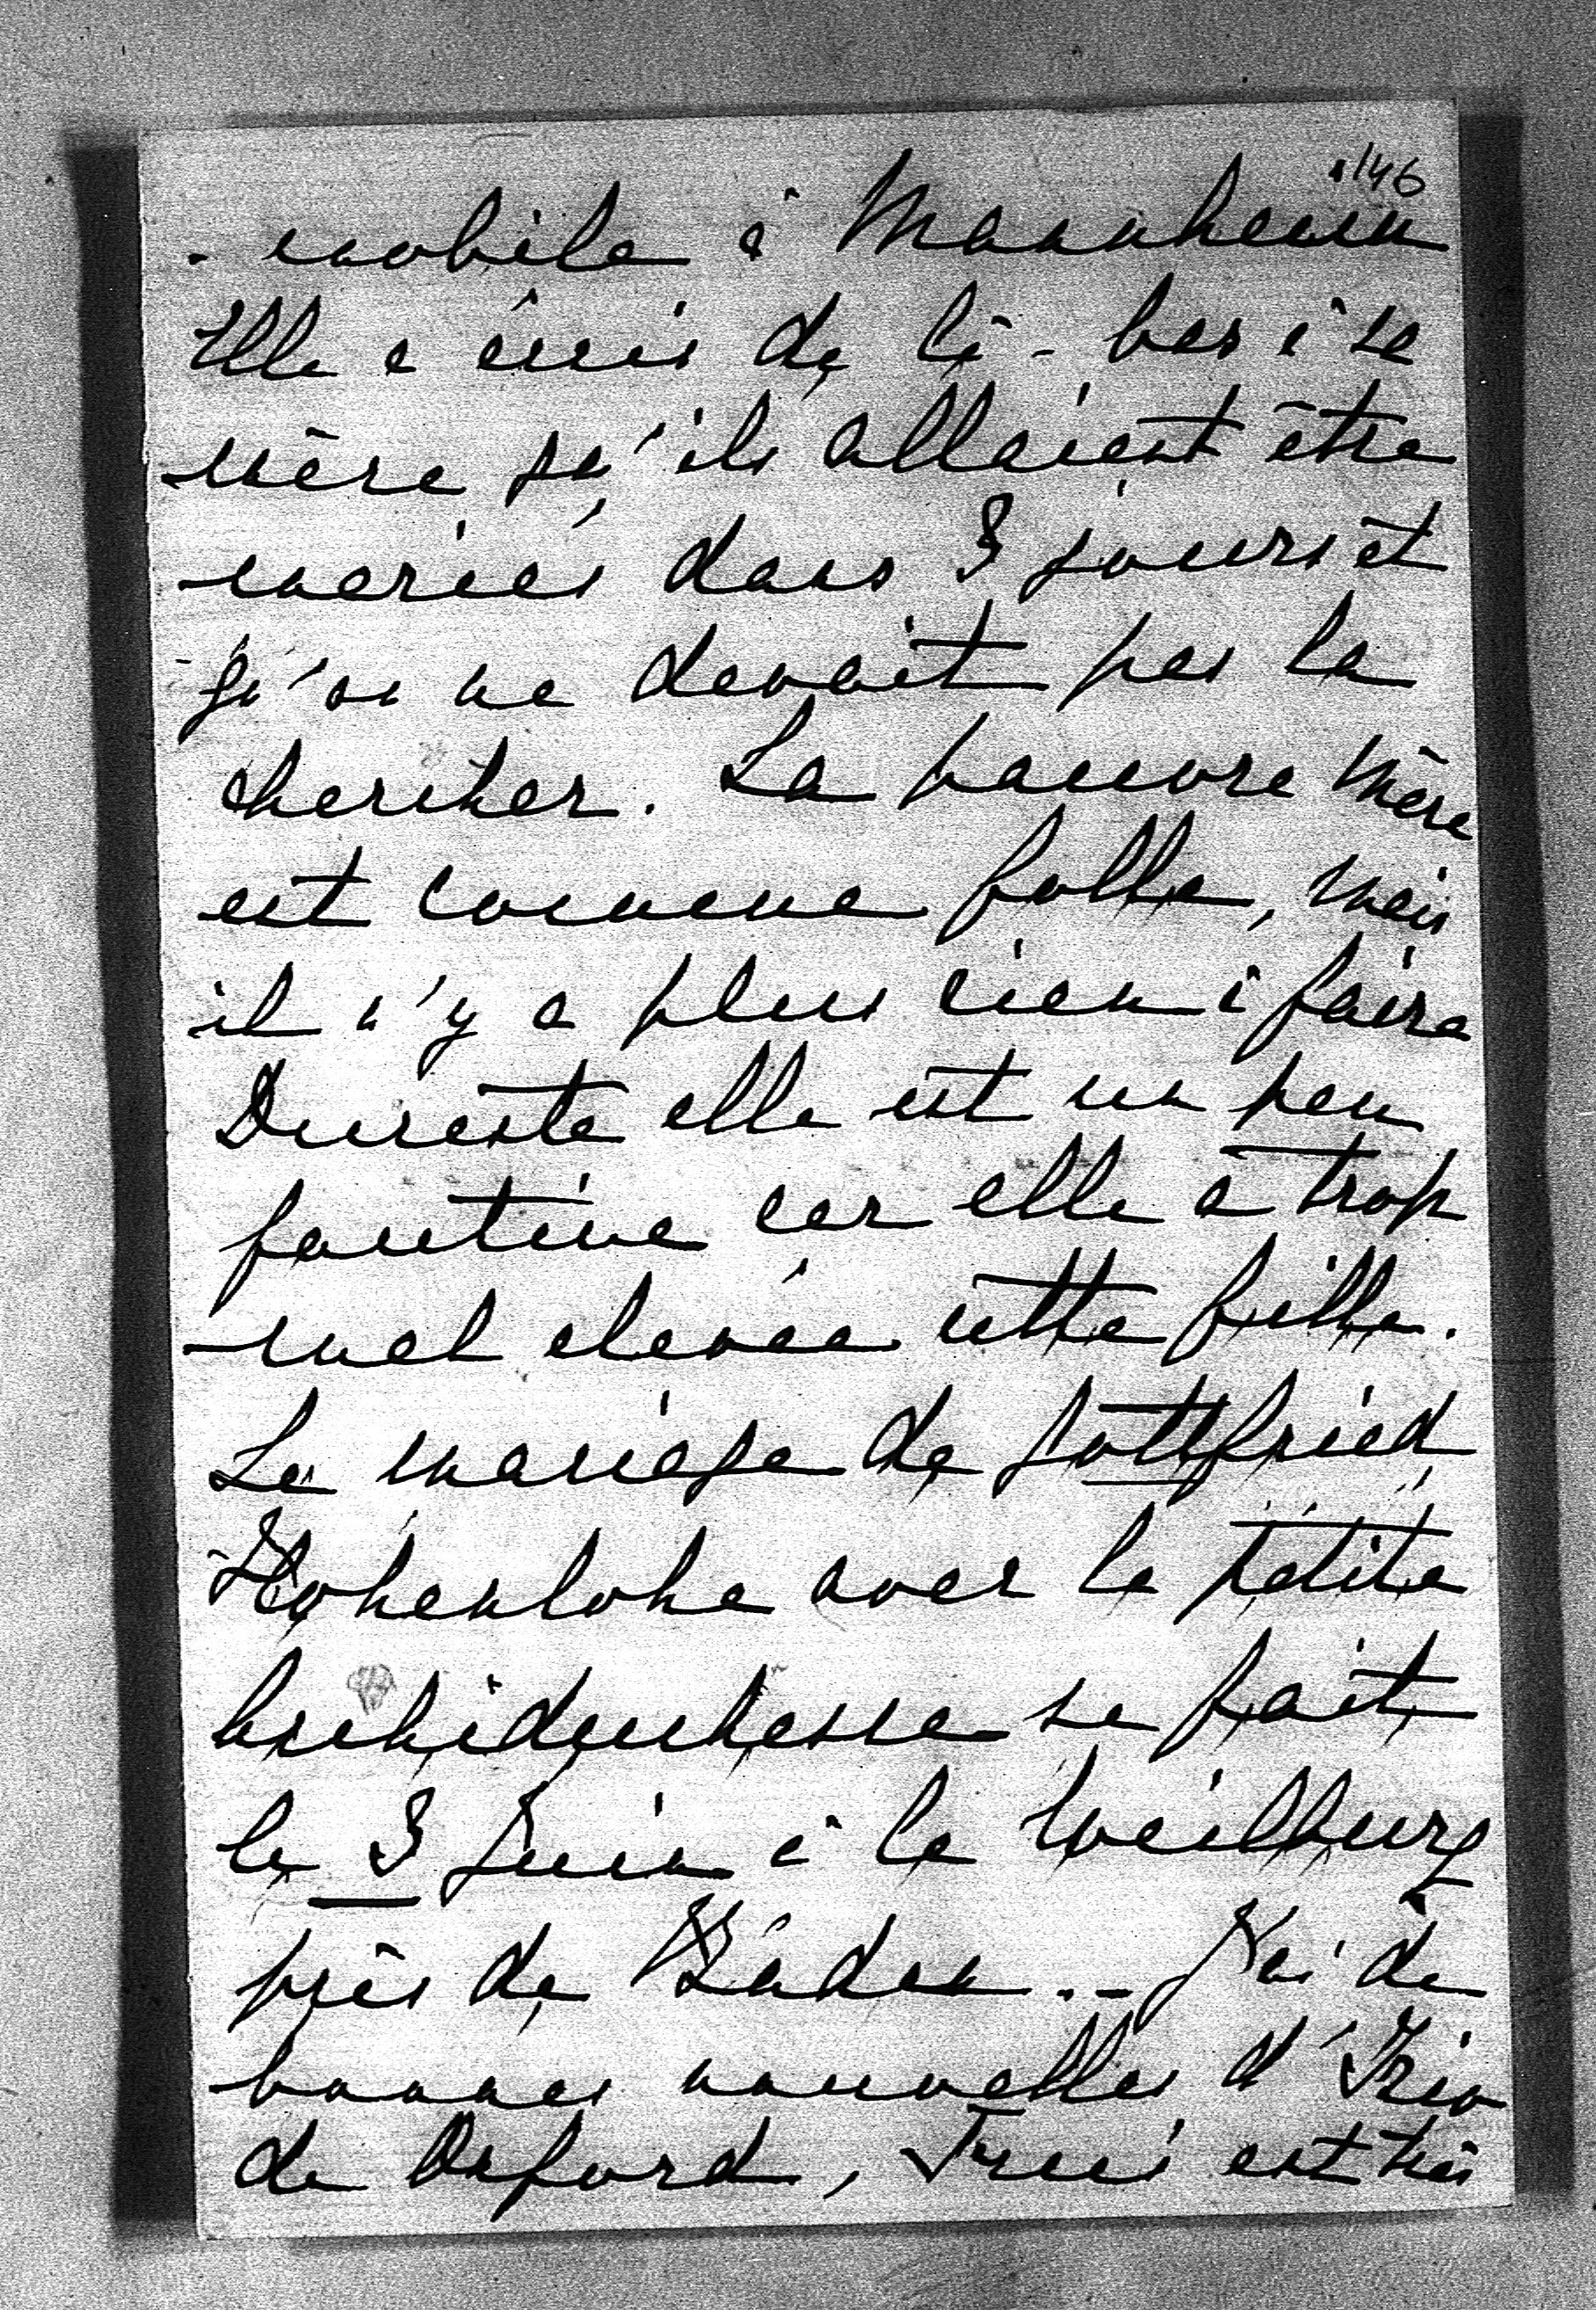 146
- mobile à Mannheim
Elle a écrit de là-bas à sa
mère qu'ils allaient être
mariés dans 3 jours et
qu'on ne devait pas la
chercher. La pauvre mère
est comme folle, mais
il n'y a plus rien à faire
Dureste elle est un peu
fautive car elle a trop
mal elevée cette fille.
Le mariage de Gottfried
Hohenlohe avec la petite
Archiduchesse se fait
le 3 Juin à la Weilburg
près de Baden.. J'ai de
bonnes nouvelles d'
de Oxford, est très